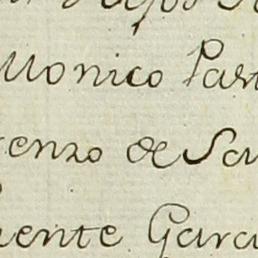 Monico Par
enzo de Sa
uente Garci